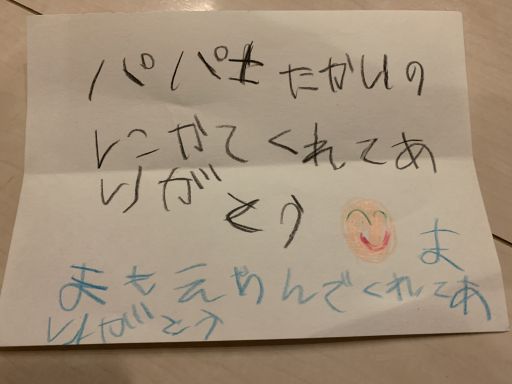 パパ たかいの
にかてくれてあ
りがとう
ま
まもえらんでくれてあ
りがとう